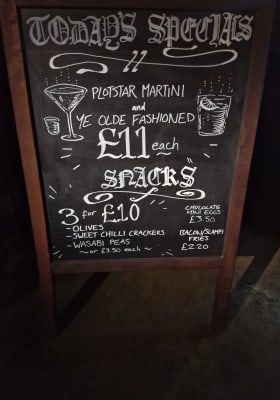 TODAY'S SPECIALS
PLOTSTAR MARTINI
and
YE OLDE FASHIONED
£11 each
SNACKS
3 for £10
- OLIVES
- SWEET CHILLI CRACKERS
- WASABI PEAS
~ or £3.50 each ~
CHOCOLATE
MINI EGGS
£3.50
BACON/SCAMPI
FRIES
£2.20